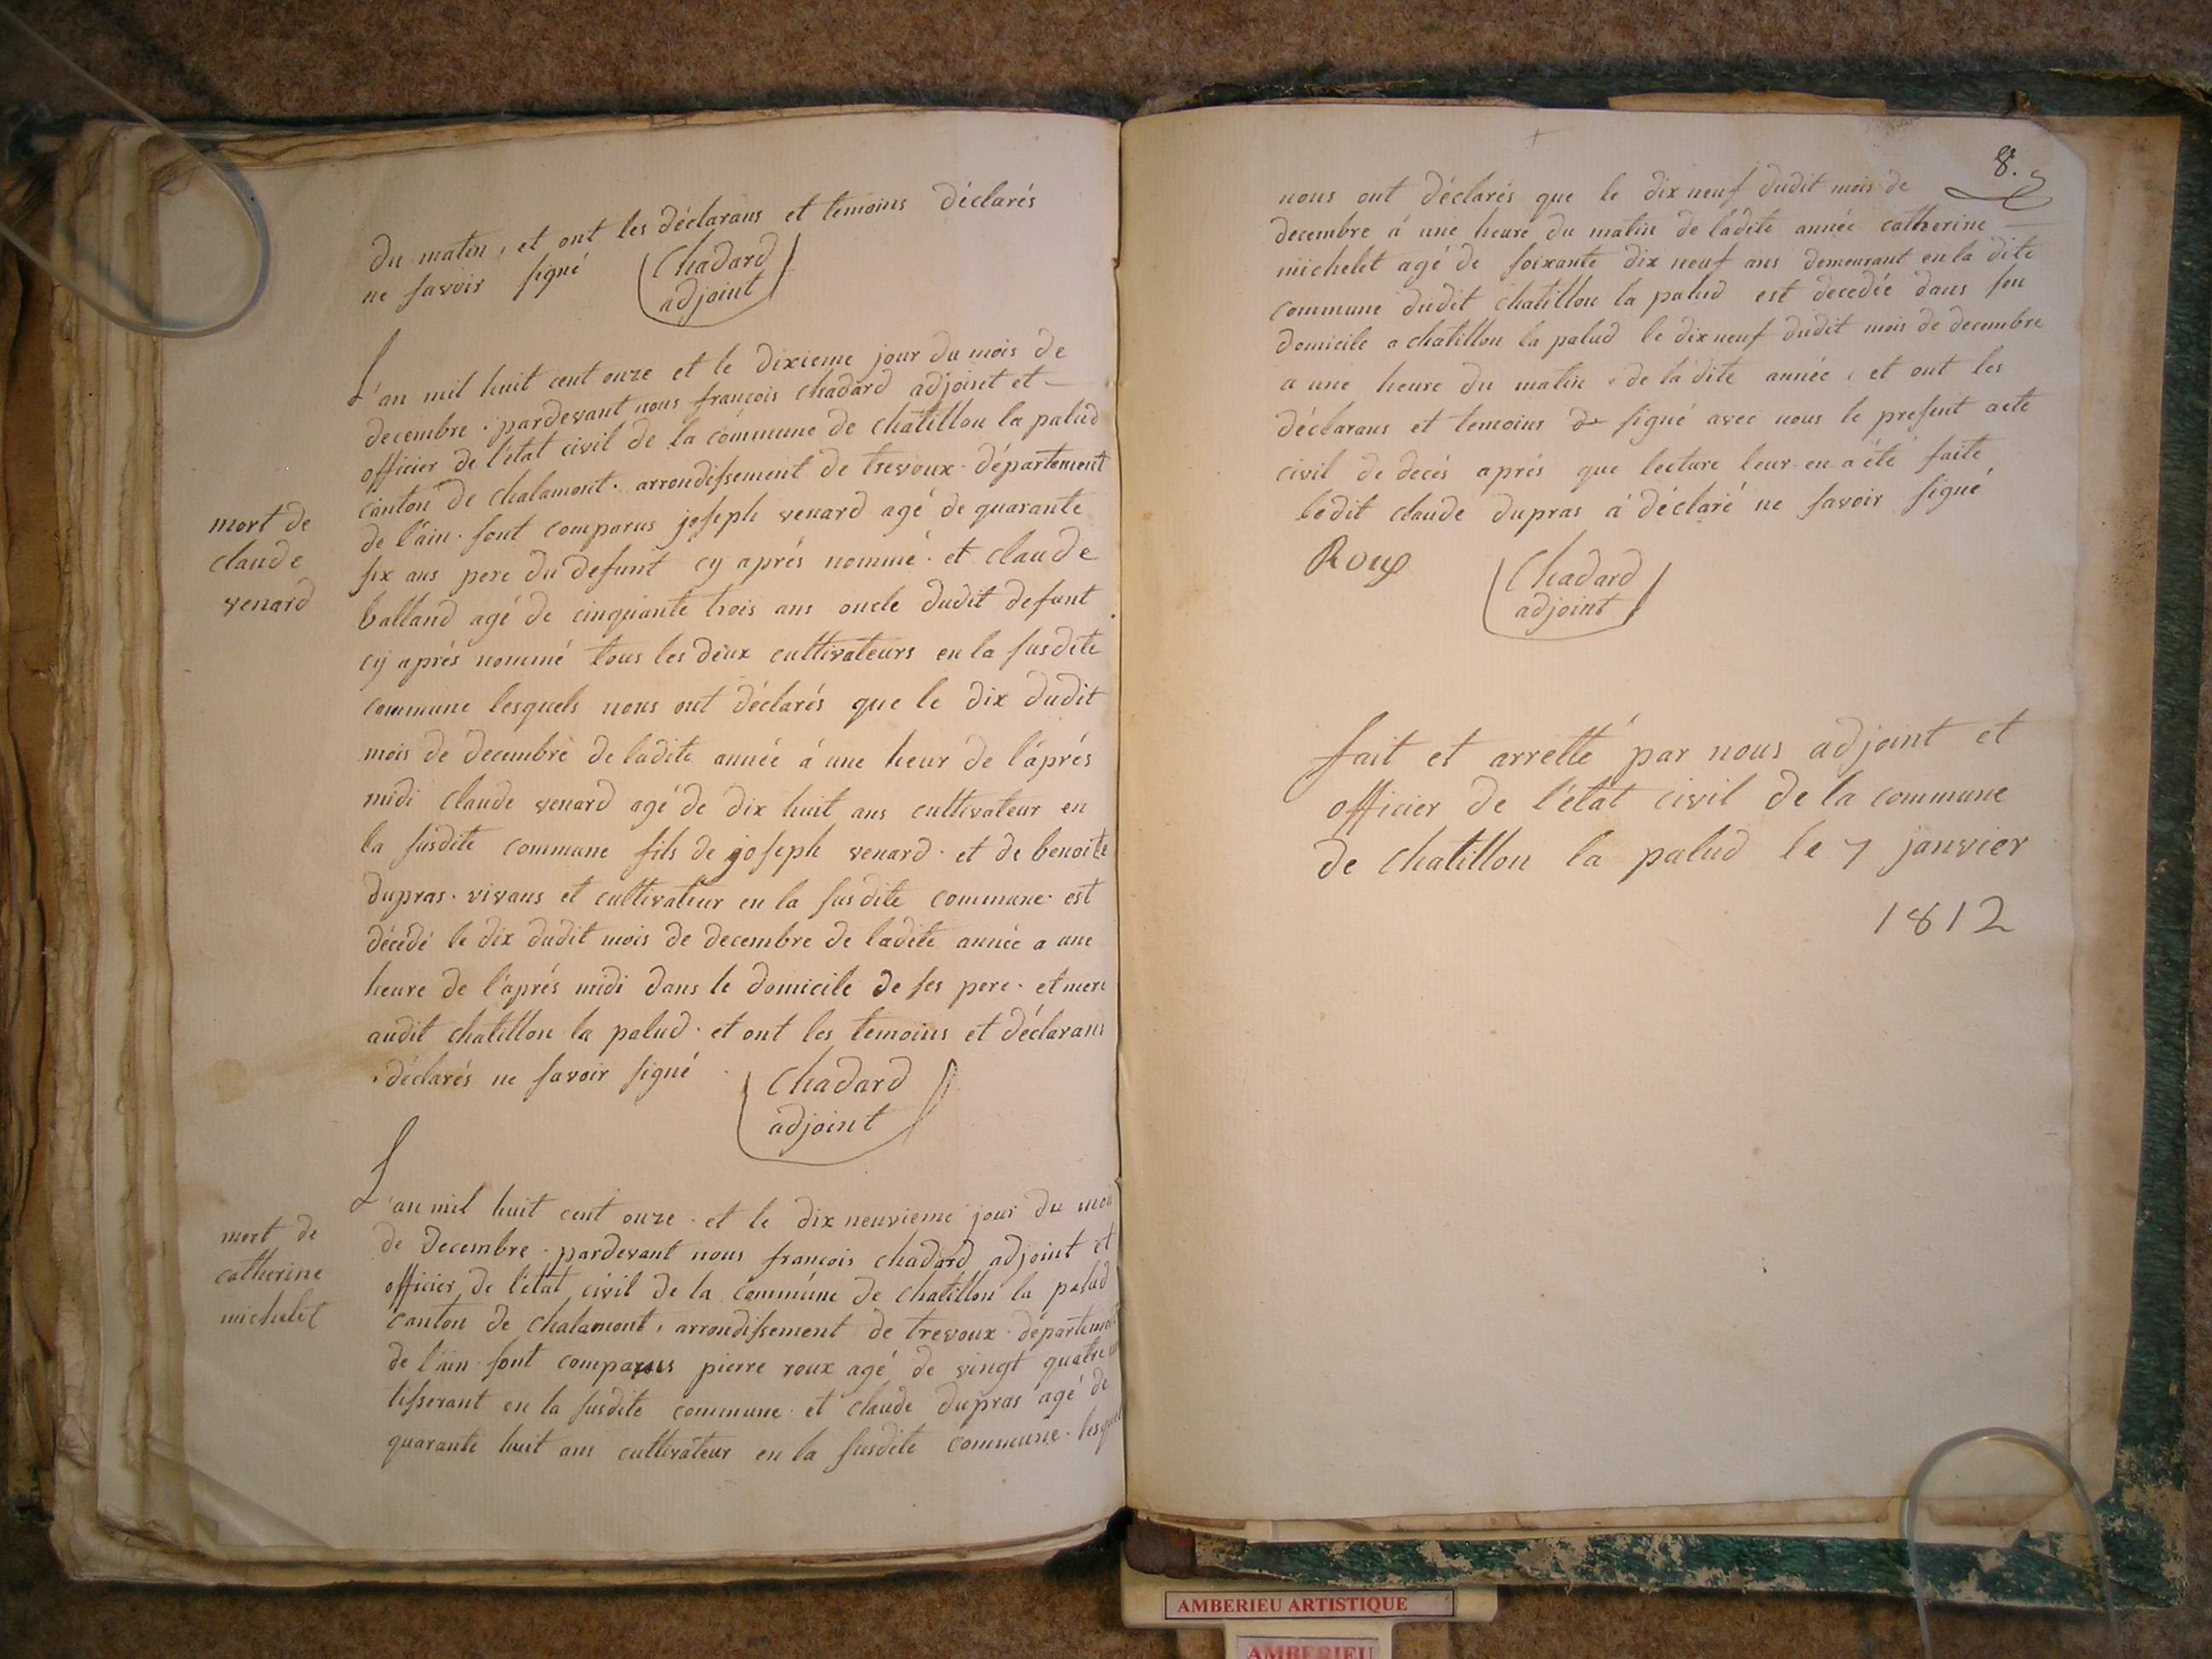 du matin, et ont les déclarans et temoins déclarés
ne savoir signé
Chadard
adjoint
L'an mil huit cent onze et le dixieme jour du mois de
decembre. pardevant nous françois chadard adjoint et
officier de l'état civil de la commune de chatillon la palud
canton de chalamont. arrondissement de trevoux. département
de l'ain. sont comparus joseph venard agé de quarante
six ans pere du defunt cy aprés nommé. et claude
balland agé de cinquante trois ans oncle dudit defunt
cy aprés nommé tous les deux cultivateurs en la susdite
commune lesquels nous ont déclarés que le dix dudit
mois de decembre de ladite année á une heur de l'áprés
midi claude venard agé de dix huit ans cultivateur en
la susdite commune fils de joseph venard. et de benoite
dupras. vivans et cultivateur en la susdite commune. est
décédé le dix dudit mois de decembre de ladite année a une
heure de l'áprés midi dans le domicile de ses pere. et mere
audit chatillon la palud. et ont les temoins et déclarans
déclarés ne savoir signé
Chadard
adjoint
mort de
claude
venard
L'an mil huit cent onze. et le dix neuvieme jour du mois
de decembre. pardevant nous françois chadard adjoint et
officier de l'état civil de la commune de chatillon la palud
canton de chalamont, arrondissement de trevoux. département
de l'ain. sont comparus pierre roux agé de vingt quatre
tisserant en la susdite commune. et claude dupras agé de
quarante huit ans cultivateur en la susdite commune. lesquel
mort de
catherine
michelet
8.
nous ont déclarés que le dix neuf dudit mois de
decembre á une heure du matin de ládite année catherine
michelet agé de soixante dix neuf ans demeurant en la dite
commune dudit chatillon la palud est decedée dans son
domicile a chatillon la palud le dix neuf dudit mois de decembre
a une heure du matin, de ládite année, et ont les
déclarans et temoins signé avec nous le present acte
civil de decés aprés que lecture leur en a été faite
ledit claude dupras á déclaré ne savoir signé
Roux
Chadard
adjoint
fait et arretté par nous adjoint et
officier de l'état civil de la commune
de chatillon la palud le 7 janvier
1812
AMBERIEU ARTISTIQUE
AMBERIEU